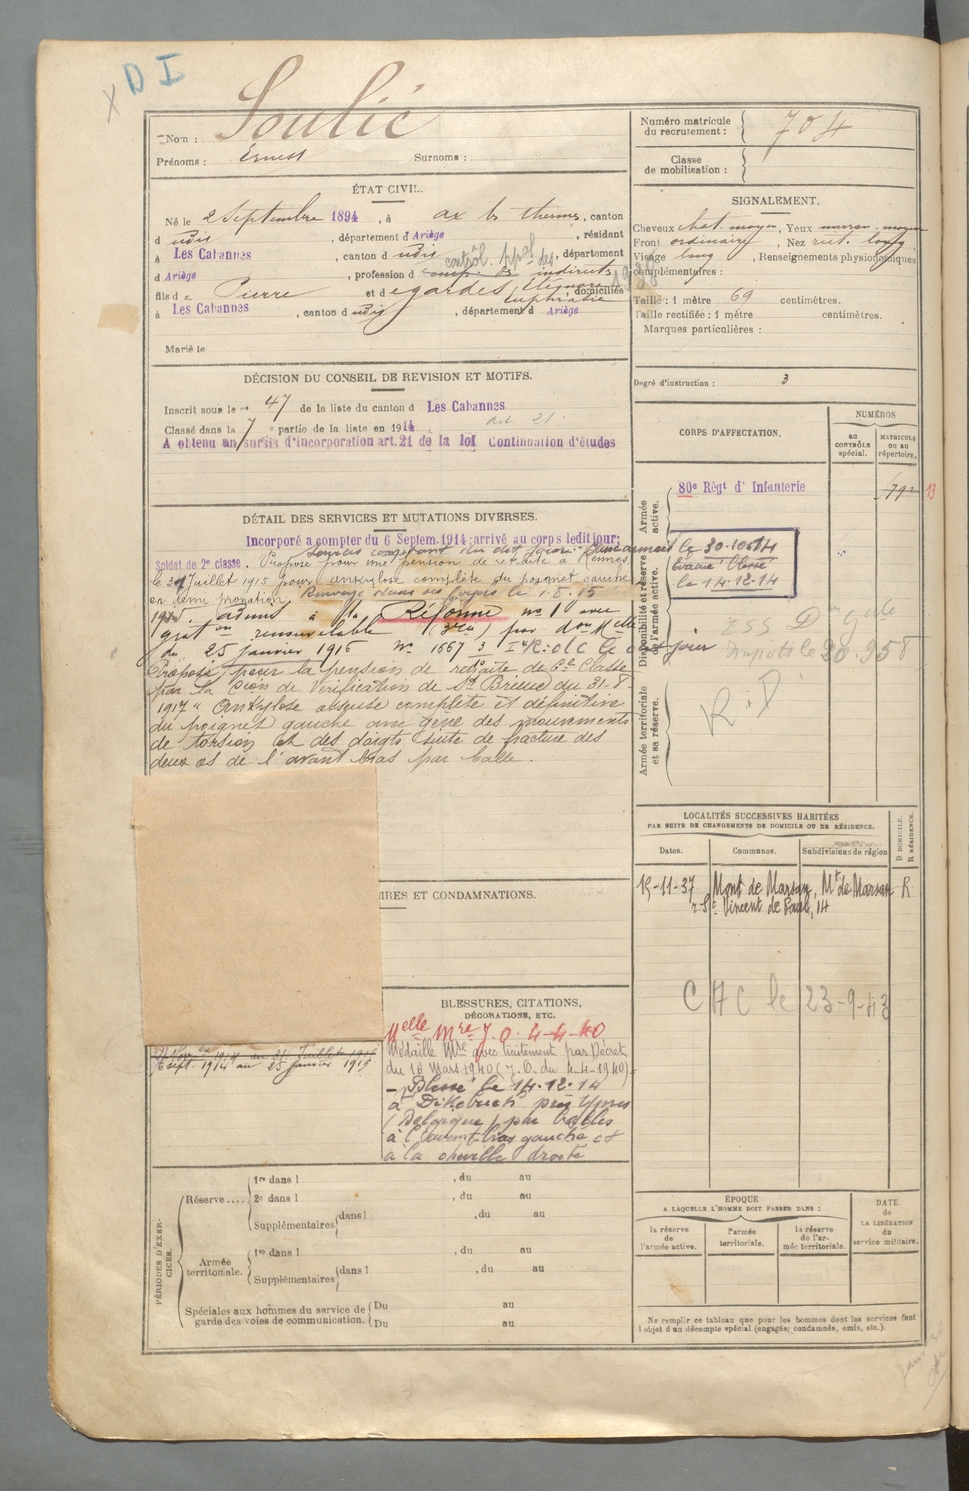 D I
Nom : Soulié
Prénoms : Ernest Surnoms :
Numéro matricule du recrutement : 704
Classe de mobilisation :
ÉTAT CIVIL.
Né le 2 Septembre 1894, à ax les thermes, canton
d udis, département d Ariège, résidant
à Les Cabannes, canton d udis, département
d Ariège, profession d contrôl. ppal des indirects
fils de Pierre et d egardes, Eléonore Euphrasie domiciliés
à Les Cabannes, canton d udis, département d Ariège
Marié le
SIGNALEMENT.
Cheveux chat. moyen, Yeux marron moyen
Front ordinaire, Nez rect. long
Visage long, Renseignements physionomiques
complémentaires :
Taille : 1 mètre 69 centimètres.
Taille rectifiée : 1 mètre centimètres.
Marques particulières :
Degré d'instruction : 3
DÉCISION DU CONSEIL DE REVISION ET MOTIFS.
Inscrit sous le n° 47 de la liste du canton d Les Cabannes
Classé dans la 7 e partie de la liste en 1914. art 21
A obtenu un sursis d'incorporation art. 21 de la loi Continuation d'études
CORPS D'AFFECTATION.
NUMÉROS
au CONTRÔLE spécial.
MATRICULE OU AU répertoire.
Armée active.
80e Régt d' Infanterie
13
le 30-10-14
Evacué blessé
le 14-12-14
Disponibilité et réserve de l'armée active.
Impôts le 20.958
R. D
Armée territoriale et sa réserve.
DÉTAIL DES SERVICES ET MUTATIONS DIVERSES.
Incorporé a compter du 6 Septem. 1914; arrivé au corps ledit jour;
Soldat de 2e classe. Proposé pour une pension de retraite à Rennes
le 31 Juillet 1915 pour ankylose complète du poignet gauche
en demi pronation. Renvoyé dans ses foyers le 1.8.15
1915. Admis à la Réforme n° 1 avec
grat on renouvelable par don Mlle
du 25 janvier 1916 N° 1667
Proposé pour la pension de retraite de 6e Classe
par la Cion de Vérification de St Brieuc du 31-8-
1917 " Ankylose obtuse complète et définitive
du poignet gauche avec gêne des mouvements
de torsion et des doigts suite de fracture des
deux os de l'avant bras par balle.
LOCALITÉS SUCCESSIVES HABITÉES
PAR SUITE DE CHANGEMENTS DE DOMICILE OU DE RÉSIDENCE.
Dates. Communes. Subdivisions de région
D DOMICILE. R RÉSIDENCE.
15-11-37 Mont de Marsan, Mt de Marsan R
r. St Vincent de Paul, 14
C A C le 23-9-43
IRES ET CONDAMNATIONS.
BLESSURES, CITATIONS,
DÉCORATIONS, ETC.
Melle Mre J.O. 4-4-40
Médaille Mre avec traitement par Décret
du 18 Mars 1940 (J.O. du 4-4-1940)
- Blessé le 14.12.14
à Dikebuch près Ypres
(Belgique) par balles
à l'avant-bras gauche et
à la cheville droite
6 sept. 1914 au 25 janvier 1916
PÉRIODES D'EXERCICES.
Réserve .... 1re dans l , du au
2e dans l , du au
Supplémentaires dans l , du au
Armée territoriale. 1re dans l , du au
Supplémentaires dans l , du au
Spéciales aux hommes du service de garde des voies de communication. Du au
Du au
ÉPOQUE
A LAQUELLE L'HOMME DOIT PASSER DANS :
la réserve de l'armée active.
l'armée territoriale.
la réserve de l'armée territoriale.
DATE de LA LIBÉRATION du service militaire.
Ne remplir ce tableau que pour les hommes dont les services font
l'objet d'un décompte spécial (engagés; condamnés, omis, etc.).